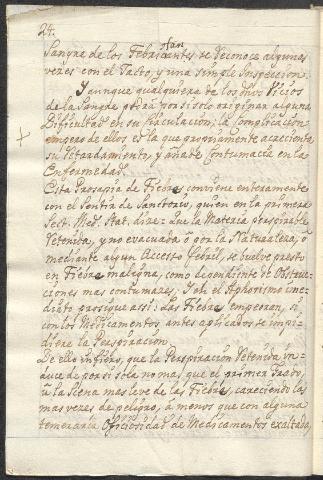 24.
Sangre de los Febricitantes se reconoce algunas
vezes con el Tacto, y una simple Inspeccion.
Y aunque qualquiera de los dos Vicios
de la Sangre podrá por si solo originar alguna
Dificultad en su Circulacion; la Complicacion
empero de ellos es la que propriamente acrecienta
su retardamiento, y añade Contumacia en la
Enfermedad.
Esta Prosapia de Fiebres conviene enteramente
con el Sentir de Sanctorio, quien en la primera
Sect. Med. Stat. dize = Que la Materia perspirable
retenida, y no evacuada ó por la Naturaleza, ó
mediante algun Accesso febril, se buelve presto
en Fiebre maligna, como dependiente de Obstruc-
ciones mas contumazes. Y en el Aphorismo ime-
diato prosigue assi: Las Fiebres empeoran, si
con los Medicamentos antes aplicados se impi-
diere la Perspiracion.
De ello infiero, que la Perspiracion retenida in-
duce de por si sola no mas que el primer Grado,
ú la Scena mas leve de las Fiebres, careciendo las
mas vezes de peligro, á menos que con alguna
temeraria Oficiosidad de Medicamentos exaltada,